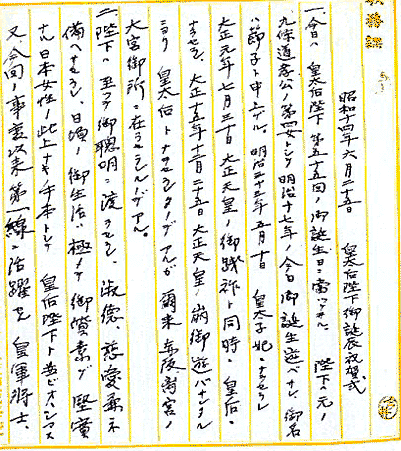 昭和十四年六月二十五日　皇太后陛下御誕辰祝賀式
一、今日ハ 皇太后陛下第五十五回ノ御誕生日ニ當ラセラル 陛下ハ元ノ
九條道孝公ノ第四女トシテ明治十七年ノ今日御誕生遊バサレ、御名
ハ節子ト申上ゲル、明治三十三年五月十日 皇太子妃ニナラセラレ
大正元年七月三十日大正天皇ノ御踐祚ト同時ニ皇后ニ
ナラセラレ、大正十五年十二月二十五日大正天皇ノ崩御遊バサレタル
ニヨリ 皇太后トナラセラレタノデアルガ爾来赤坂離宮ノ
大宮御所ニ在ラセラレルノデアル。
二、陛下ハ至ツテ御聰明ニ渡ラセラレ、淑德、慈愛兼ネ
備ヘサセラレ、日頃ノ御生活ハ極メテ御質素デ堅實
ナル日本女性ノ此上ナキ手本トシテ 皇后陛下ト並ビオハシマス
又、今回ノ事変以来第一線ニ活躍スル皇軍将士、